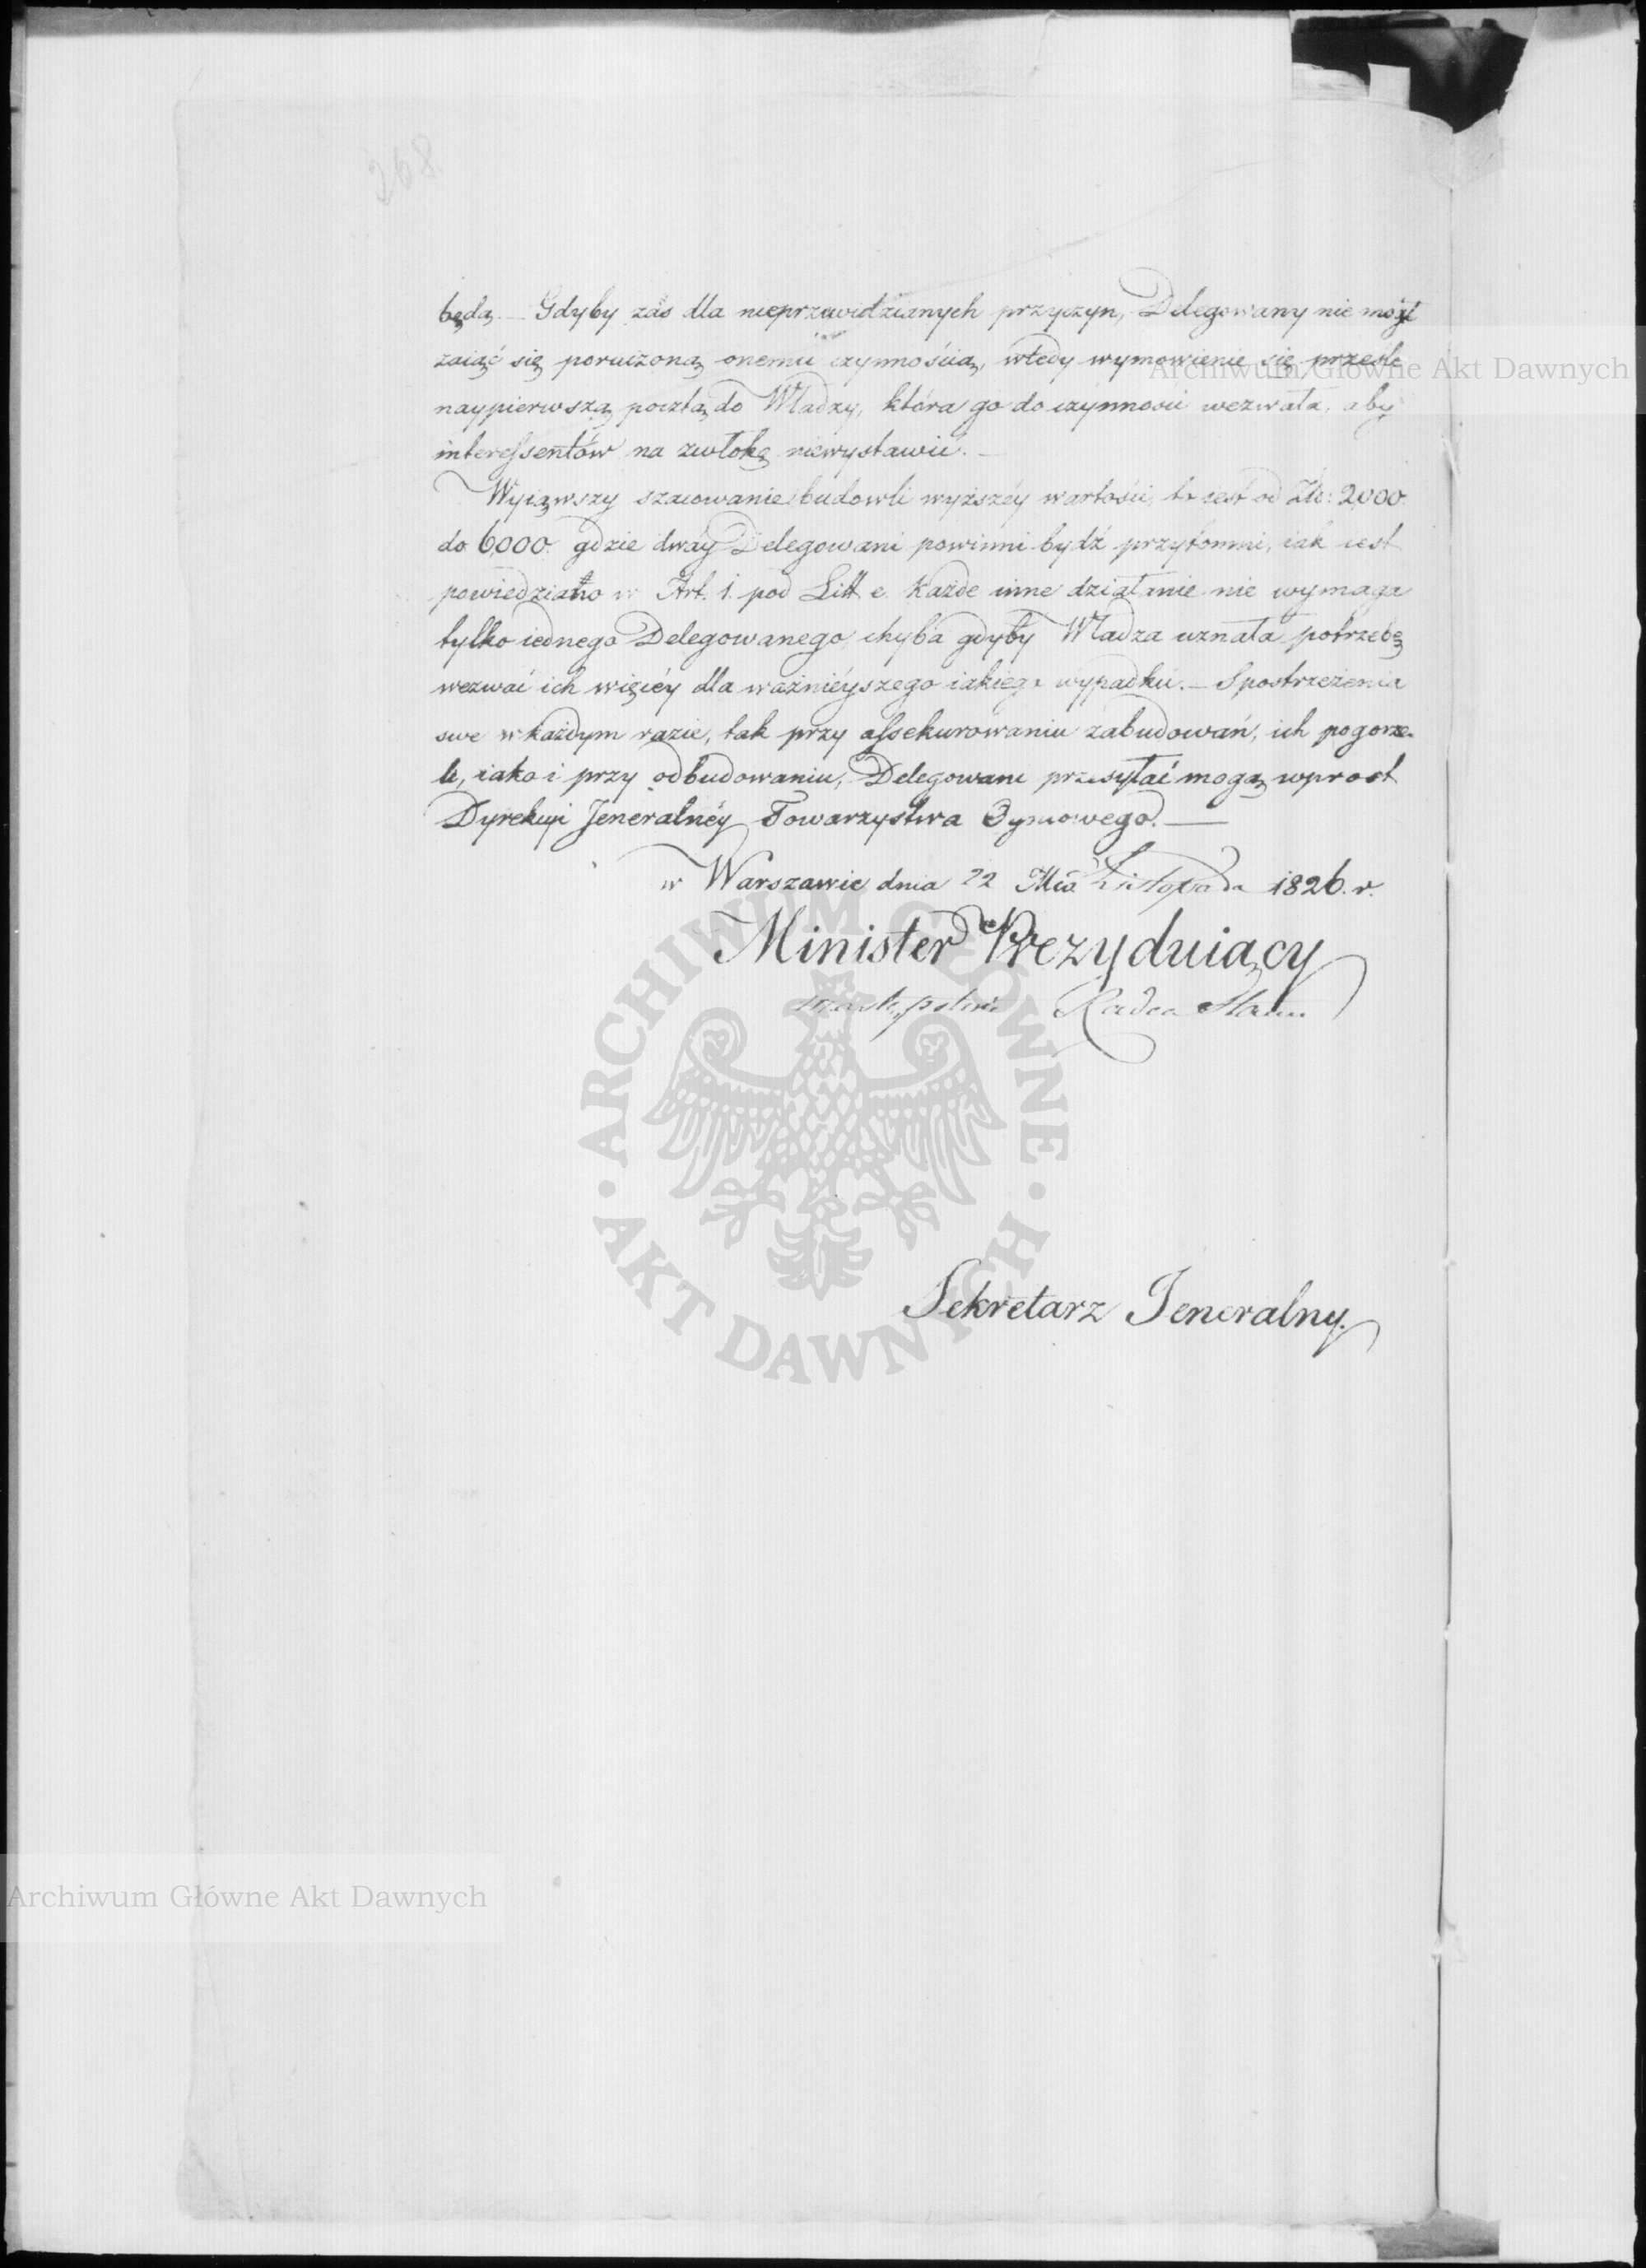 268.
będą. – Gdyby zaś dla nieprzewidzianych przyczyn, Delegowany nie mógł
zaiąć się poruczoną onemu czynnością, wtedy wymowienie się prześle
naypierwszą pocztą do Władzy, która go do czynności wezwała, aby
interessentów na zwłokę niewystawić. –
Wyiąwszy szacowanie budowli wyższéy wartości, to iest od Złt: 2,000.
do 6,000. gdzie dway Delegowani powinni bydź przytomni, iak iest
powiedziano w Art. 1. pod Litt e. Każde inne działanie nie wymaga
tylko iednego Delegowanego, chyba gdyby Władza uznała potrzebę
wezwać ich więcéy dla ważnieyszego iakiego wypadku. – Spostrzeżenia
swe w każdym razie, tak przy assekurowaniu zabudowań, ich pogorze-
li, iako i przy odbudowaniu, Delegowani przesyłać mogą wprost
Dyrekcyi Jeneralnéy Towarzystwa Ogniowego. –
w Warszawie dnia 22 Mca Listopada 1826. r.
Minister Prezyduiący
w zastępstwie Radca Stanu
Sekretarz Jeneralny.
Archiwum Główne Akt Dawnych
ARCHIWUM GŁÓWNE AKT DAWNYCH
Archiwum Główne Akt Dawnych